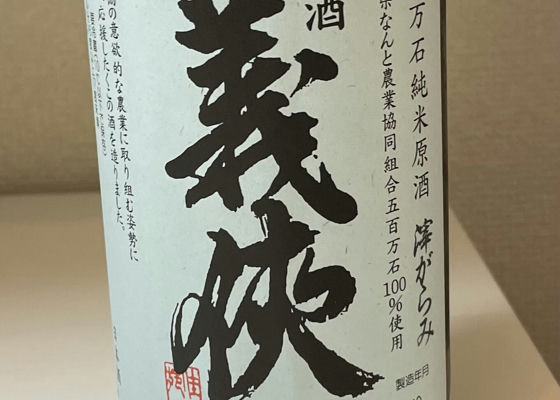 万石純米原酒 滓がらみ
県なんと農業協同組合五百万石100%使用
製造年月
酒
義侠
の意欲的な農業に取り組む姿勢に
応援したくこの酒を造りました。